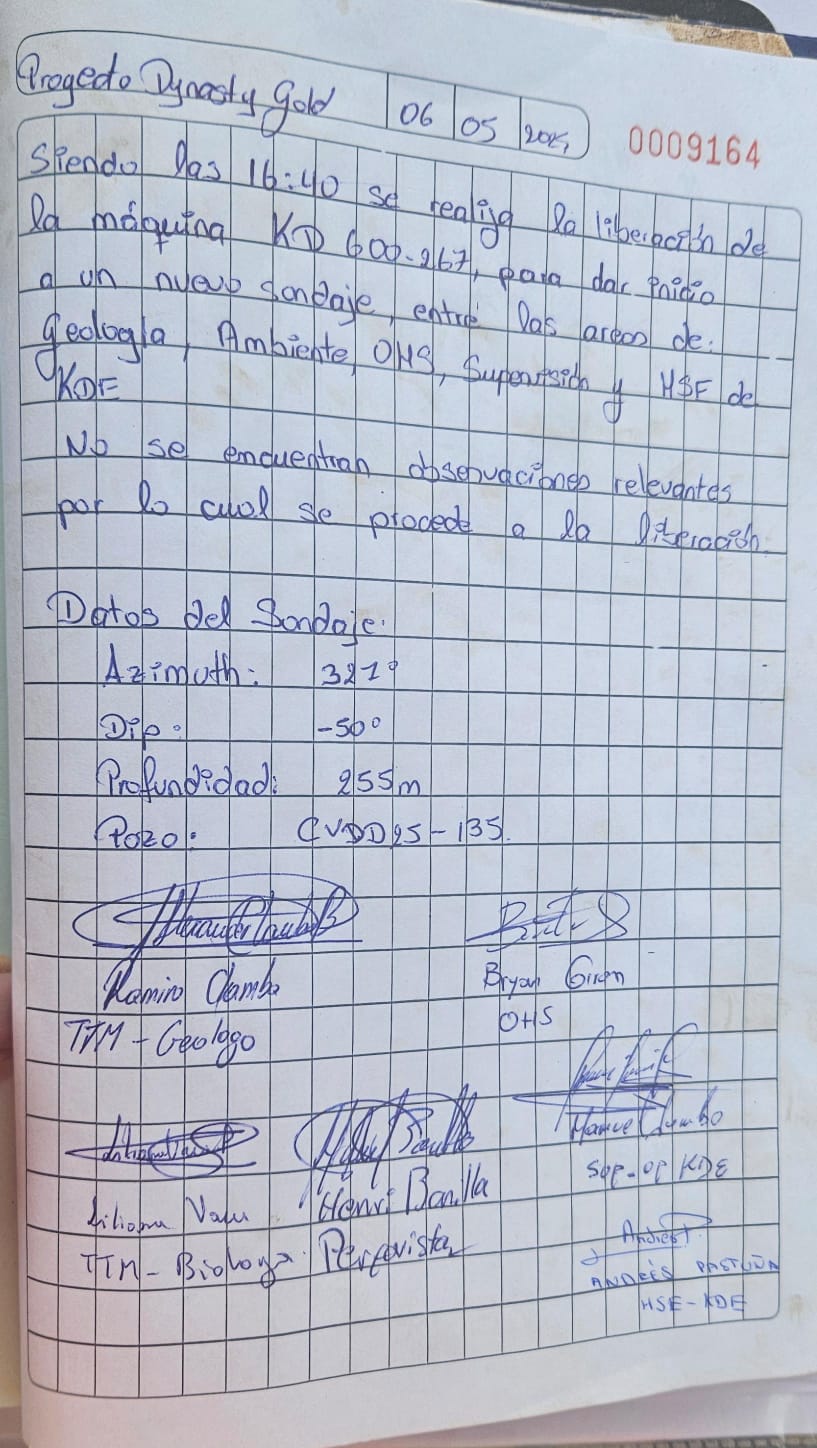 Proyecto Dynasty Gold 06 05 2025 0009164
Siendo las 16:40 se realiza la liberación de
la máquina KD 600-267, para dar inicio
a un nuevo sondaje, entre las areas de:
Geología, Ambiente, OHS, Supervisión y HSE de
KDE
No se encuentran observaciones relevantes
por lo cual se procede a la liberación.
Datos del Sondaje:
Azimuth: 321°
Dip: -50°
Profundidad: 255m
Pozo: CVDD25-135.
Ramiro Clamba Bryan Giron
TTM - Geologo OHS
Manuel
Sup-op KDE
Liliana Henri Bonilla
TTM - Biologa Perforista
ANDRÉS PASTUÑA
HSE-KDE